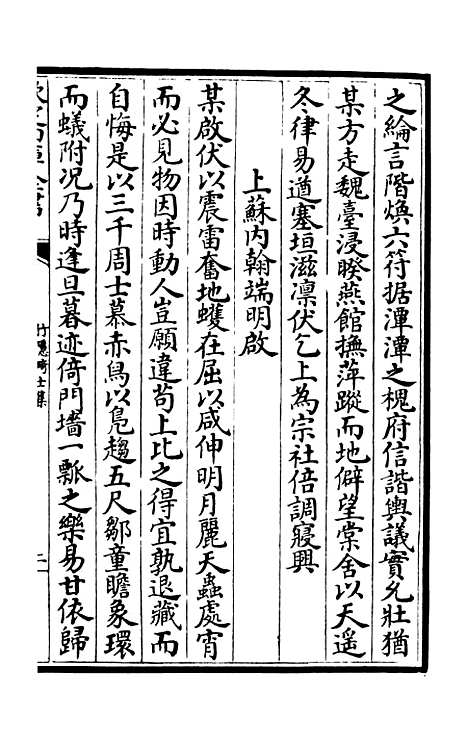 之綸言階煥六符据潭潭之槐府信諧輿議實允壯猶
某方走魏臺浸睽燕館撫萍蹤而地僻望棠舍以天遥
冬律易遒塞垣滋凛伏乞上為宗社倍調寢興
上蘇内翰端明啟
某啟伏以震雷奮地蠖在屈以咸伸明月麗天蟲處宵
而必見物因時動人豈願違苟上比之得宜孰退藏而
自悔是以三千周士慕赤舄以鳬趨五尺鄒童瞻象環
而蟻附况乃時逢旦暮迹倚門墻一瓢之樂易甘依歸
竹隱畸士集